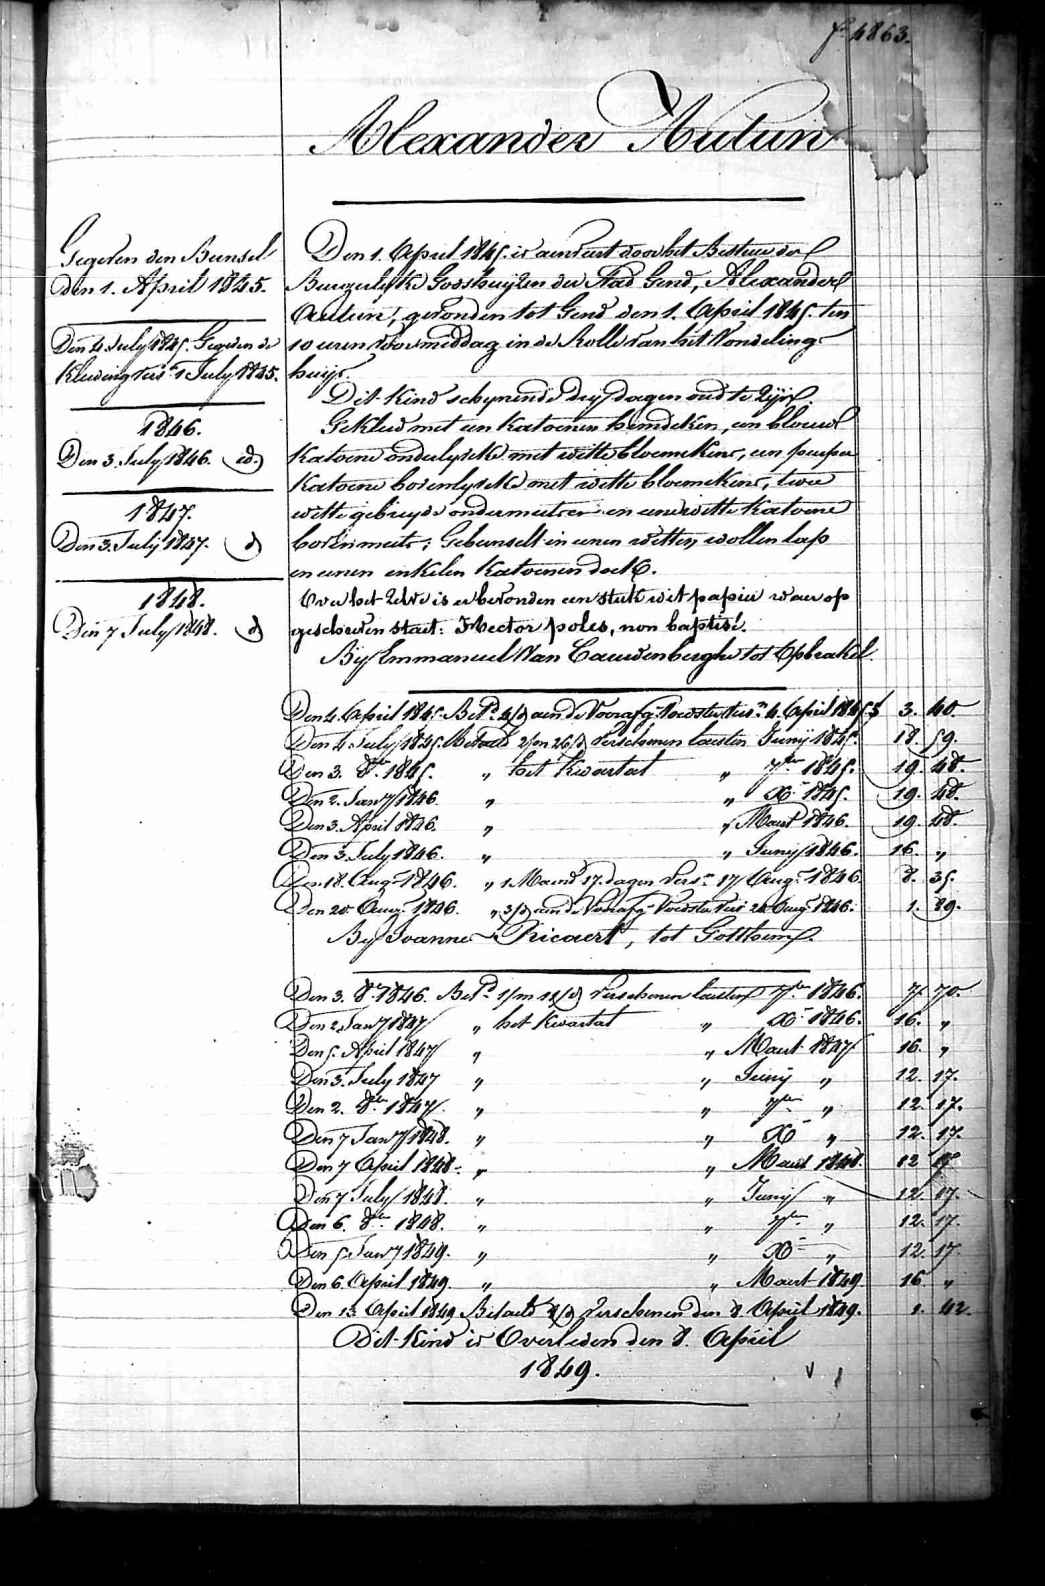 f° 4863.
Alexander Autun
Gegeven den Bunsel
den 1. April 1845.
Den 4. July 1845. Gegeven de
Kleeding 1 July 1845.
1846.
Den 3. July 1846. id.
1847.
Den 3. July 1847. d
1848.
Den 7 July 1848. d
Den 1. April 1845. is aenveert door het Bestuer der
Burgerlyke Godshuyzen der Stad Gend, Alexander
Autun, gevonden tot Gend den 1. April 1845. ten
10 uren voormiddag in de Rolle van het Vondeling-
huys.
Dit kind schynende dry dagen oud te zyn.
Gekleed met een katoenen hemdeken, een blouw
katoene onderlyfke met witte bloemekens, een purper
katoene bovenlyfke met witte bloemekens, twee
witte gebreyde ondermutsen en eene witte katoene
bovenmuts; Gebunselt in eenen witten wollen lap
en eenen enkelen katoenen doek.
Over het zelve is er bevonden een stuk wit papier waer op
geschreven staet: Hector poles, non baptisé.
By Emmanuel Van Cauwenberghe tot Opbrakel.
Den 4. April 1845. Bet.d 4/d aen de Voorafg. Voedster 4. April 1845. f 3. 40.
Den 4 July 1845. Betaelt 2/m 26/d verschenen laesten Juny 1845. 18. 59.
Den 3. 8.ber 1845. „ het kwartal „ 7.ber 1845. 19. 48.
Den 2. Jany 1846. „ „ X.r 1845. 19. 48.
Den 3. April 1846. „ „ Maert 1846. 19. 48.
Den 3 July 1846. „ „ Juny 1846. 16. „
Den 18. Aug. 1846. „ 1 Maend 17. dagen vers.n 17 Aug. 1846. 8. 35.
Den 20. Aug. 1846. „ 3/d aen de Voorafg. Voedster 20 Aug. 1846. 1. 89.
By Joanne Ricaert, tot Gotthem.
Den 3. 8.r 1846. Bet.d 1/m 12/d verschenen laesten 7.ber 1846. 7. 70.
Den 2. Jany 1847 „ het kwartal „ X.r 1846. 16. „
Den 5. April 1847 „ „ Maert 1847 16. „
Den 3. July 1847 „ „ Juny „ 12. 17.
Den 2. 8.ber 1847. „ „ 7.ber „ 12. 17.
Den 7 Jany 1848. „ „ X.r „ 12. 17.
Den 7 April 1848. „ „ Maert 1848. 12 17
Den 7 July 1848. „ „ Juny „ 12. 17.
Den 6. 8.ber 1848. „ „ 7.ber „ 12. 17.
Den 5 Jany 1849. „ „ X.r „ 12. 17.
Den 6. April 1849. „ „ Maert 1849 16 „
Den 13. April 1849 Betaelt 8/d verschenen den 8 April 1849. 1. 42.
Dit kind is Overleden den 8. April
1849.